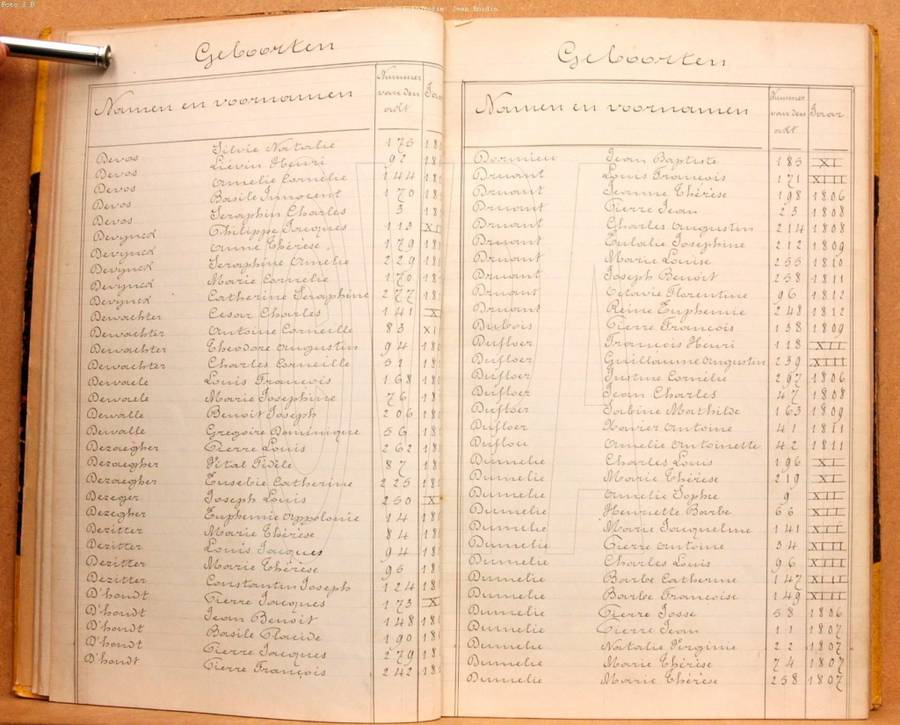 Foto J.B
Geboorten
Namen en voornamen Nummer van den adt
Devos Silvie Natalie 175 18
Devos Liévin Henri 92 18
Devos Amelie Cornélie 144 18
Devos Basile Innocent 170 18
Devos Seraphin Charles 3 18
Devynck Philippe Jacques 113 XI
Devynck Anne Thérèse 179 18
Devynck Seraphine Amelie 229 18
Devynck Marie Cornélie 170 18
Devynck Catherine Seraphine 277 18
Dewachter Cesar Charles 141 X
Dewachter Antoine Corneille 83 XI
Dewachter Theodore Augustin 94 18
Dewachter Charles Corneille 51 18
Dewaele Louis François 168 18
Dewaele Marie Josephine 76 18
Dewalle Benoit Joseph 206 18
Dewalle Gregoire Dominique 56 18
Dezaegher Pierre Louis 262 18
Dezaegher Vital Fidèle 87 18
Dezaegher Eusebie Catherine 225 18
Dezeger Joseph Louis 250 X
Dezegher Euphemie Appolonie 14 18
Dezitter Marie Thérèse 84 18
Dezitter Louis Jacques 94 18
Dezitter Marie Thérèse 96 18
Dezitter Constantin Joseph 124 18
D'hondt Pierre Jacques 173 X
D'hondt Jean Benoit 148 18
D'hondt Basile Claude 190 18
D'hondt Pierre Jacques 279 18
D'hondt Pierre François 242 18
Geboorten
Namen en voornamen Nummer van den adt Jaar
Dormieu Jean Baptiste 185 XI
Druant Louis François 171 XIII
Druant Jeanne Thérèse 198 1806
Druant Pierre Jean 23 1808
Druant Charles Augustin 214 1808
Druant Eulalie Josephine 212 1809
Druant Marie Louise 255 1810
Druant Joseph Benoit 258 1811
Druant Octavie Florentine 96 1812
Druant Reine Euphemie 248 1812
Dubois Pierre François 138 1809
Dufloer François Henri 118 XII
Dufloer Guillaume Augustin 239 XIII
Dufloer Justine Cornélie 297 1806
Dufloer Jean Charles 47 1808
Dufloer Sabine Mathilde 163 1809
Dufloer Xavier Antoine 41 1811
Duflou Amelie Antoinette 42 1811
Dumelie Charles Louis 196 XI
Dumelie Marie Thérèse 219 XI
Dumelie Amelie Sophie 9 XII
Dumelie Henriette Barbe 66 XII
Dumelie Marie Jacqueline 141 XII
Dumelie Pierre Antoine 34 XIII
Dumelie Charles Louis 96 XIII
Dumelie Barbe Catherine 147 XIII
Dumelie Barbe Françoise 149 XIII
Dumelie Pierre Josse 58 1806
Dumelie Pierre Jean 11 1807
Dumelie Natalie Virginie 22 1807
Dumelie Marie Thérèse 74 1807
Dumelie Marie Thérèse 258 1807